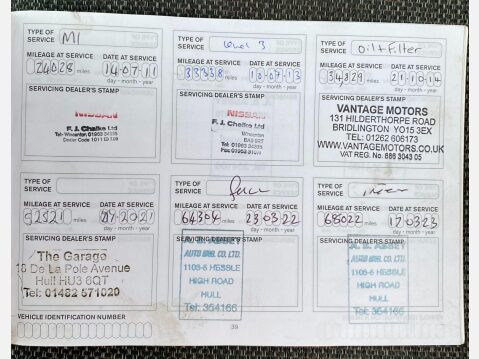 TYPE OF
SERVICE M1
MILEAGE AT SERVICE DATE AT SERVICE
24028 miles 14-07-11
day - month - year
SERVICING DEALER'S STAMP
NISSAN
F. J. Chalke Ltd
TYPE OF
SERVICE Level 3
MILEAGE AT SERVICE DATE AT SERVICE
33338 miles 10-07-13
day - month - year
SERVICING DEALER'S STAMP
NISSAN
F. J. Chalke Ltd
Wincanton
TYPE OF
SERVICE Oil + Filter
MILEAGE AT SERVICE DATE AT SERVICE
34,829 miles 21-10-14
day - month - year
SERVICING DEALER'S STAMP
VANTAGE MOTORS
131 HILDERTHORPE ROAD
BRIDLINGTON YO15 3EX
TEL: 01262 606173
WWW.VANTAGEMOTORS.CO.UK
VAT REG. No. 886 3043 05
TYPE OF
SERVICE
MILEAGE AT SERVICE DATE AT SERVICE
52521 miles
day - month - year
SERVICING DEALER'S STAMP
The Garage
18 De La Pole Avenue
Hull HU3 6QT
Tel: 01482 571020
TYPE OF
SERVICE
MILEAGE AT SERVICE DATE AT SERVICE
64304 miles 23-03-22
day - month - year
SERVICING DEALER'S STAMP
AUTO ENG. CO. LTD.
1105-6 HESSLE
HIGH ROAD
HULL
Tel: 354166
TYPE OF
SERVICE
MILEAGE AT SERVICE DATE AT SERVICE
68022 miles 17-03-23
day - month - year
SERVICING DEALER'S STAMP
AUTO ENG. CO. LTD.
1105-6 HESSLE
HIGH ROAD
HULL
Tel: 354166
VEHICLE IDENTIFICATION NUMBER
39